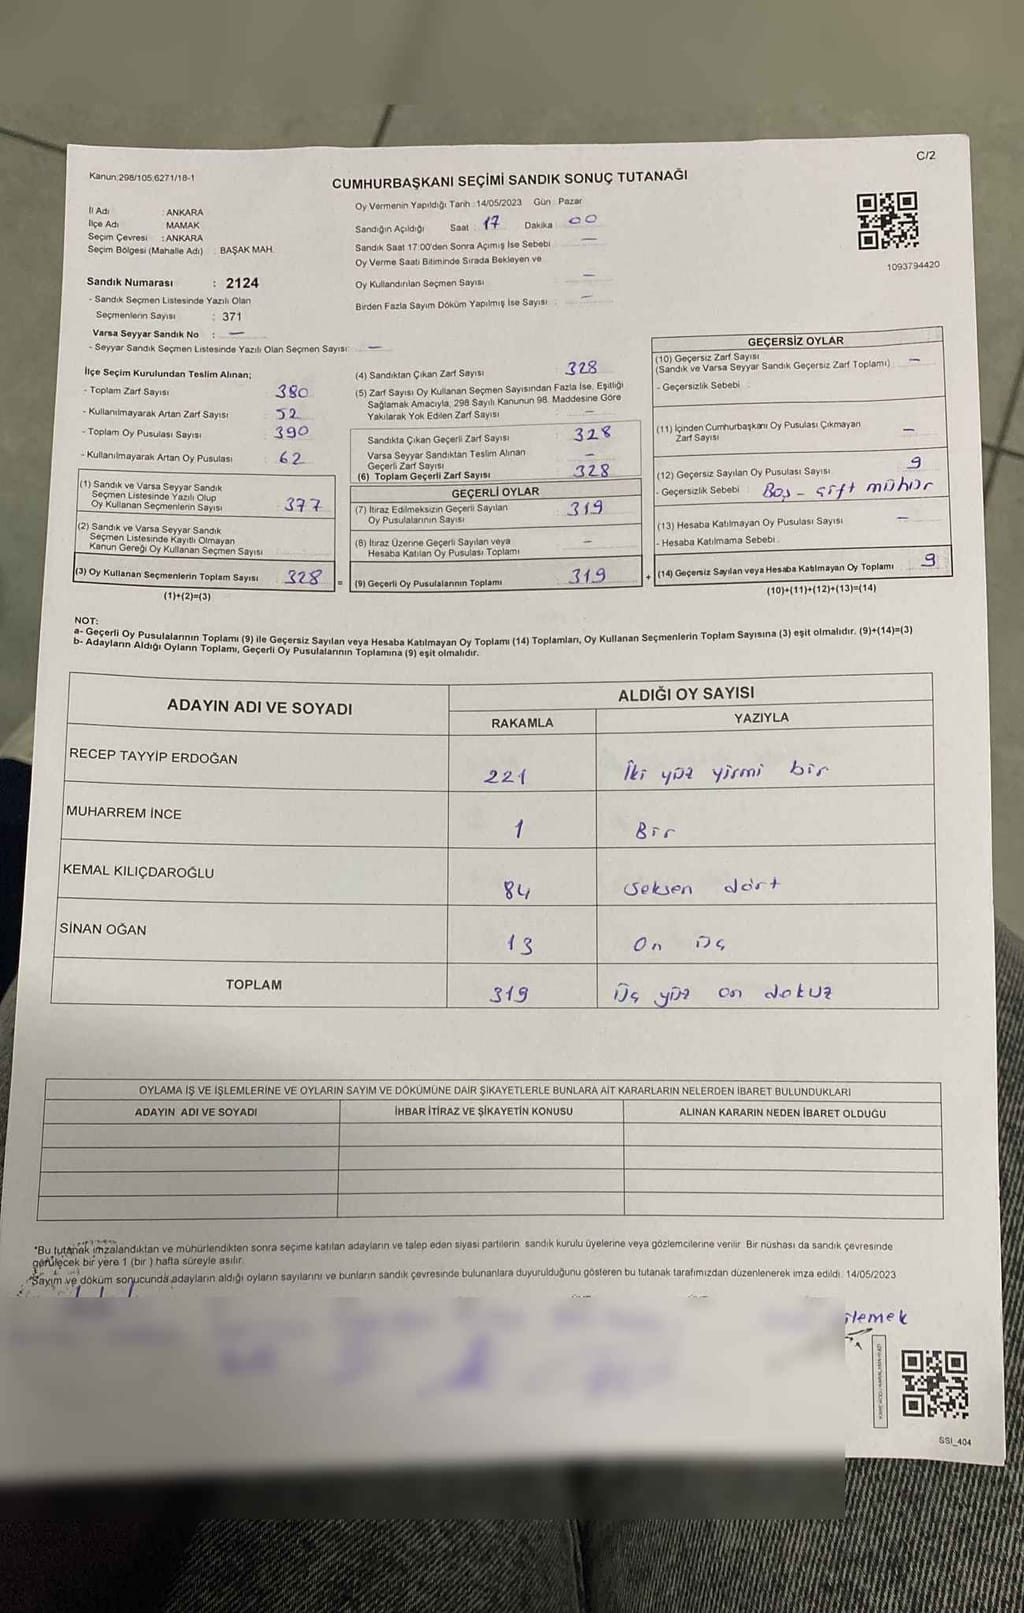 C/2
Kanun:298/105,6271/18-1
CUMHURBAŞKANI SEÇİMİ SANDIK SONUÇ TUTANAĞI
İl Adı : ANKARA
İlçe Adı : MAMAK
Seçim Çevresi : ANKARA
Seçim Bölgesi (Mahalle Adı) : BAŞAK MAH.
Oy Vermenin Yapıldığı Tarih : 14/05/2023 Gün : Pazar
Sandığın Açıldığı Saat : 17 Dakika : 00
Sandık Saat 17:00'den Sonra Açımış İse Sebebi : —
Oy Verme Saati Bitiminde Sırada Bekleyen ve
Oy Kullandırılan Seçmen Sayısı : —
Birden Fazla Sayım Döküm Yapılmış İse Sayısı : —
1093794420
Sandık Numarası : 2124
- Sandık Seçmen Listesinde Yazılı Olan
Seçmenlerin Sayısı : 371
Varsa Seyyar Sandık No : —
- Seyyar Sandık Seçmen Listesinde Yazılı Olan Seçmen Sayısı: —
İlçe Seçim Kurulundan Teslim Alınan;
- Toplam Zarf Sayısı : 380
- Kullanılmayarak Artan Zarf Sayısı : 52
- Toplam Oy Pusulası Sayısı : 390
- Kullanılmayarak Artan Oy Pusulası : 62
(1) Sandık ve Varsa Seyyar Sandık
Seçmen Listesinde Yazılı Olup
Oy Kullanan Seçmenlerin Sayısı : 377
(2) Sandık ve Varsa Seyyar Sandık
Seçmen Listesinde Kayıtlı Olmayan
Kanun Gereği Oy Kullanan Seçmen Sayısı
(3) Oy Kullanan Seçmenlerin Toplam Sayısı : 328 =
(1)+(2)=(3)
(4) Sandıktan Çıkan Zarf Sayısı : 328
(5) Zarf Sayısı Oy Kullanan Seçmen Sayısından Fazla İse, Eşitliği
Sağlamak Amacıyla, 298 Sayılı Kanunun 98. Maddesine Göre
Yakılarak Yok Edilen Zarf Sayısı : —
Sandıkta Çıkan Geçerli Zarf Sayısı : 328
Varsa Seyyar Sandıktan Teslim Alınan
Geçerli Zarf Sayısı : —
(6) Toplam Geçerli Zarf Sayısı : 328
GEÇERLİ OYLAR
(7) İtiraz Edilmeksizin Geçerli Sayılan
Oy Pusulalarının Sayısı : 319
(8) İtiraz Üzerine Geçerli Sayılan veya
Hesaba Katılan Oy Pusulası Toplamı : —
(9) Geçerli Oy Pusulalarının Toplamı : 319 +
GEÇERSİZ OYLAR
(10) Geçersiz Zarf Sayısı
(Sandık ve Varsa Seyyar Sandık Geçersiz Zarf Toplamı) : —
- Geçersizlik Sebebi :
(11) İçinden Cumhurbaşkanı Oy Pusulası Çıkmayan
Zarf Sayısı : —
(12) Geçersiz Sayılan Oy Pusulası Sayısı : 9
- Geçersizlik Sebebi : Boş - çift mühür
(13) Hesaba Katılmayan Oy Pusulası Sayısı : —
- Hesaba Katılmama Sebebi :
(14) Geçersiz Sayılan veya Hesaba Katılmayan Oy Toplamı : 9
(10)+(11)+(12)+(13)=(14)
NOT:
a- Geçerli Oy Pusulalarının Toplamı (9) ile Geçersiz Sayılan veya Hesaba Katılmayan Oy Toplamı (14) Toplamları, Oy Kullanan Seçmenlerin Toplam Sayısına (3) eşit olmalıdır. (9)+(14)=(3)
b- Adayların Aldığı Oyların Toplamı, Geçerli Oy Pusulalarının Toplamına (9) eşit olmalıdır.
ADAYIN ADI VE SOYADI ALDIĞI OY SAYISI
RAKAMLA YAZIYLA
RECEP TAYYİP ERDOĞAN 221 İki yüz yirmi bir
MUHARREM İNCE 1 Bir
KEMAL KILIÇDAROĞLU 84 Seksen dört
SİNAN OĞAN 13 On üç
TOPLAM 319 Üç yüz on dokuz
OYLAMA İŞ VE İŞLEMLERİNE VE OYLARIN SAYIM VE DÖKÜMÜNE DAİR ŞİKAYETLERLE BUNLARA AİT KARARLARIN NELERDEN İBARET BULUNDUKLARI
ADAYIN ADI VE SOYADI İHBAR İTİRAZ VE ŞİKAYETİN KONUSU ALINAN KARARIN NEDEN İBARET OLDUĞU
*Bu tutanak imzalandıktan ve mühürlendikten sonra seçime katılan adayların ve talep eden siyasi partilerin sandık kurulu üyelerine veya gözlemcilerine verilir. Bir nüshası da sandık çevresinde
görülecek bir yere 1 (bir ) hafta süreyle asılır.
*Sayım ve döküm sonucunda adayların aldığı oyların sayılarını ve bunların sandık çevresinde bulunanlara duyurulduğunu gösteren bu tutanak tarafımızdan düzenlenerek imza edildi. 14/05/2023
SSI_404